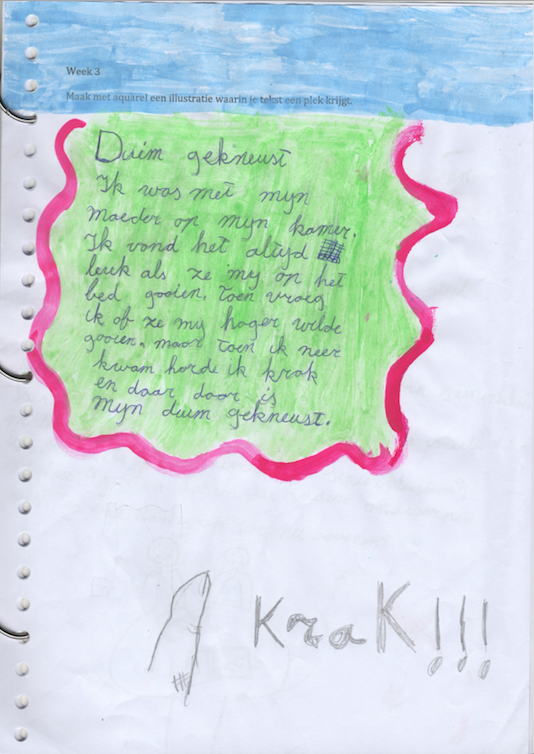 Week 3
Maak met aquarel een illustratie waarin je tekst een plek krijgt.
Duim gekneust
Ik was met mijn
moeder op mijn kamer.
Ik vond het altijd
leuk als ze mij op het
bed gooien. toen vroeg
ik of ze mij hoger wilde
gooien. maar toen ik neer
kwam horde ik krak
en daar door is
mijn duim gekneust.
KraK!!!